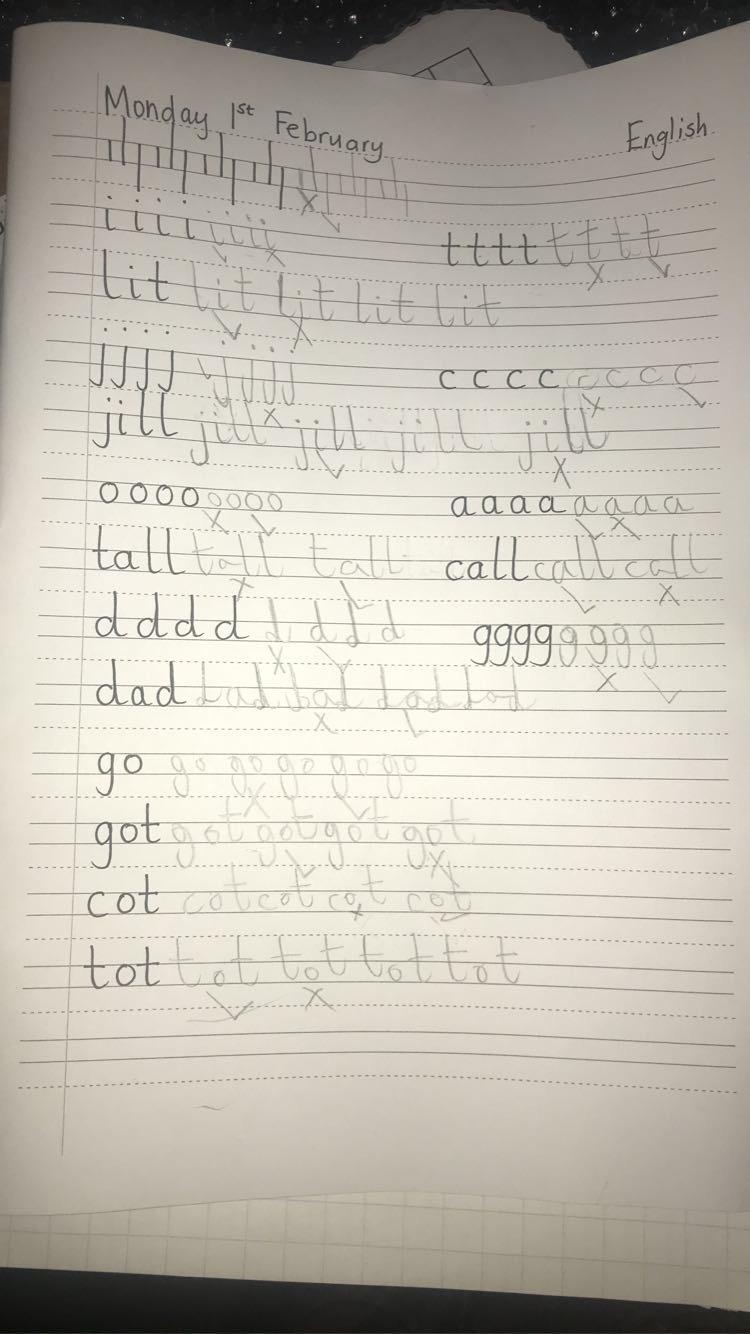 Monday 1st February English
i i i i i i i i t t t t t t t t
lit lit lit lit lit
j j j j j j j j c c c c c c c c
jill jill jill jill jill
o o o o o o o o a a a a a a a a
tall tall tall call call call
d d d d d d d d g g g g g g g g
dad dad dad dad dad
go go go go go go
got got got got got
cot cot cot cot cot
tot tot tot tot tot